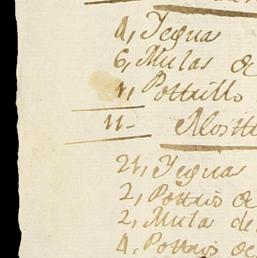 4, Yegua
6, Mulas de
1, Potrillo
11-
24, Yegua
2, Potros de
2, Mula de
4, Potros de